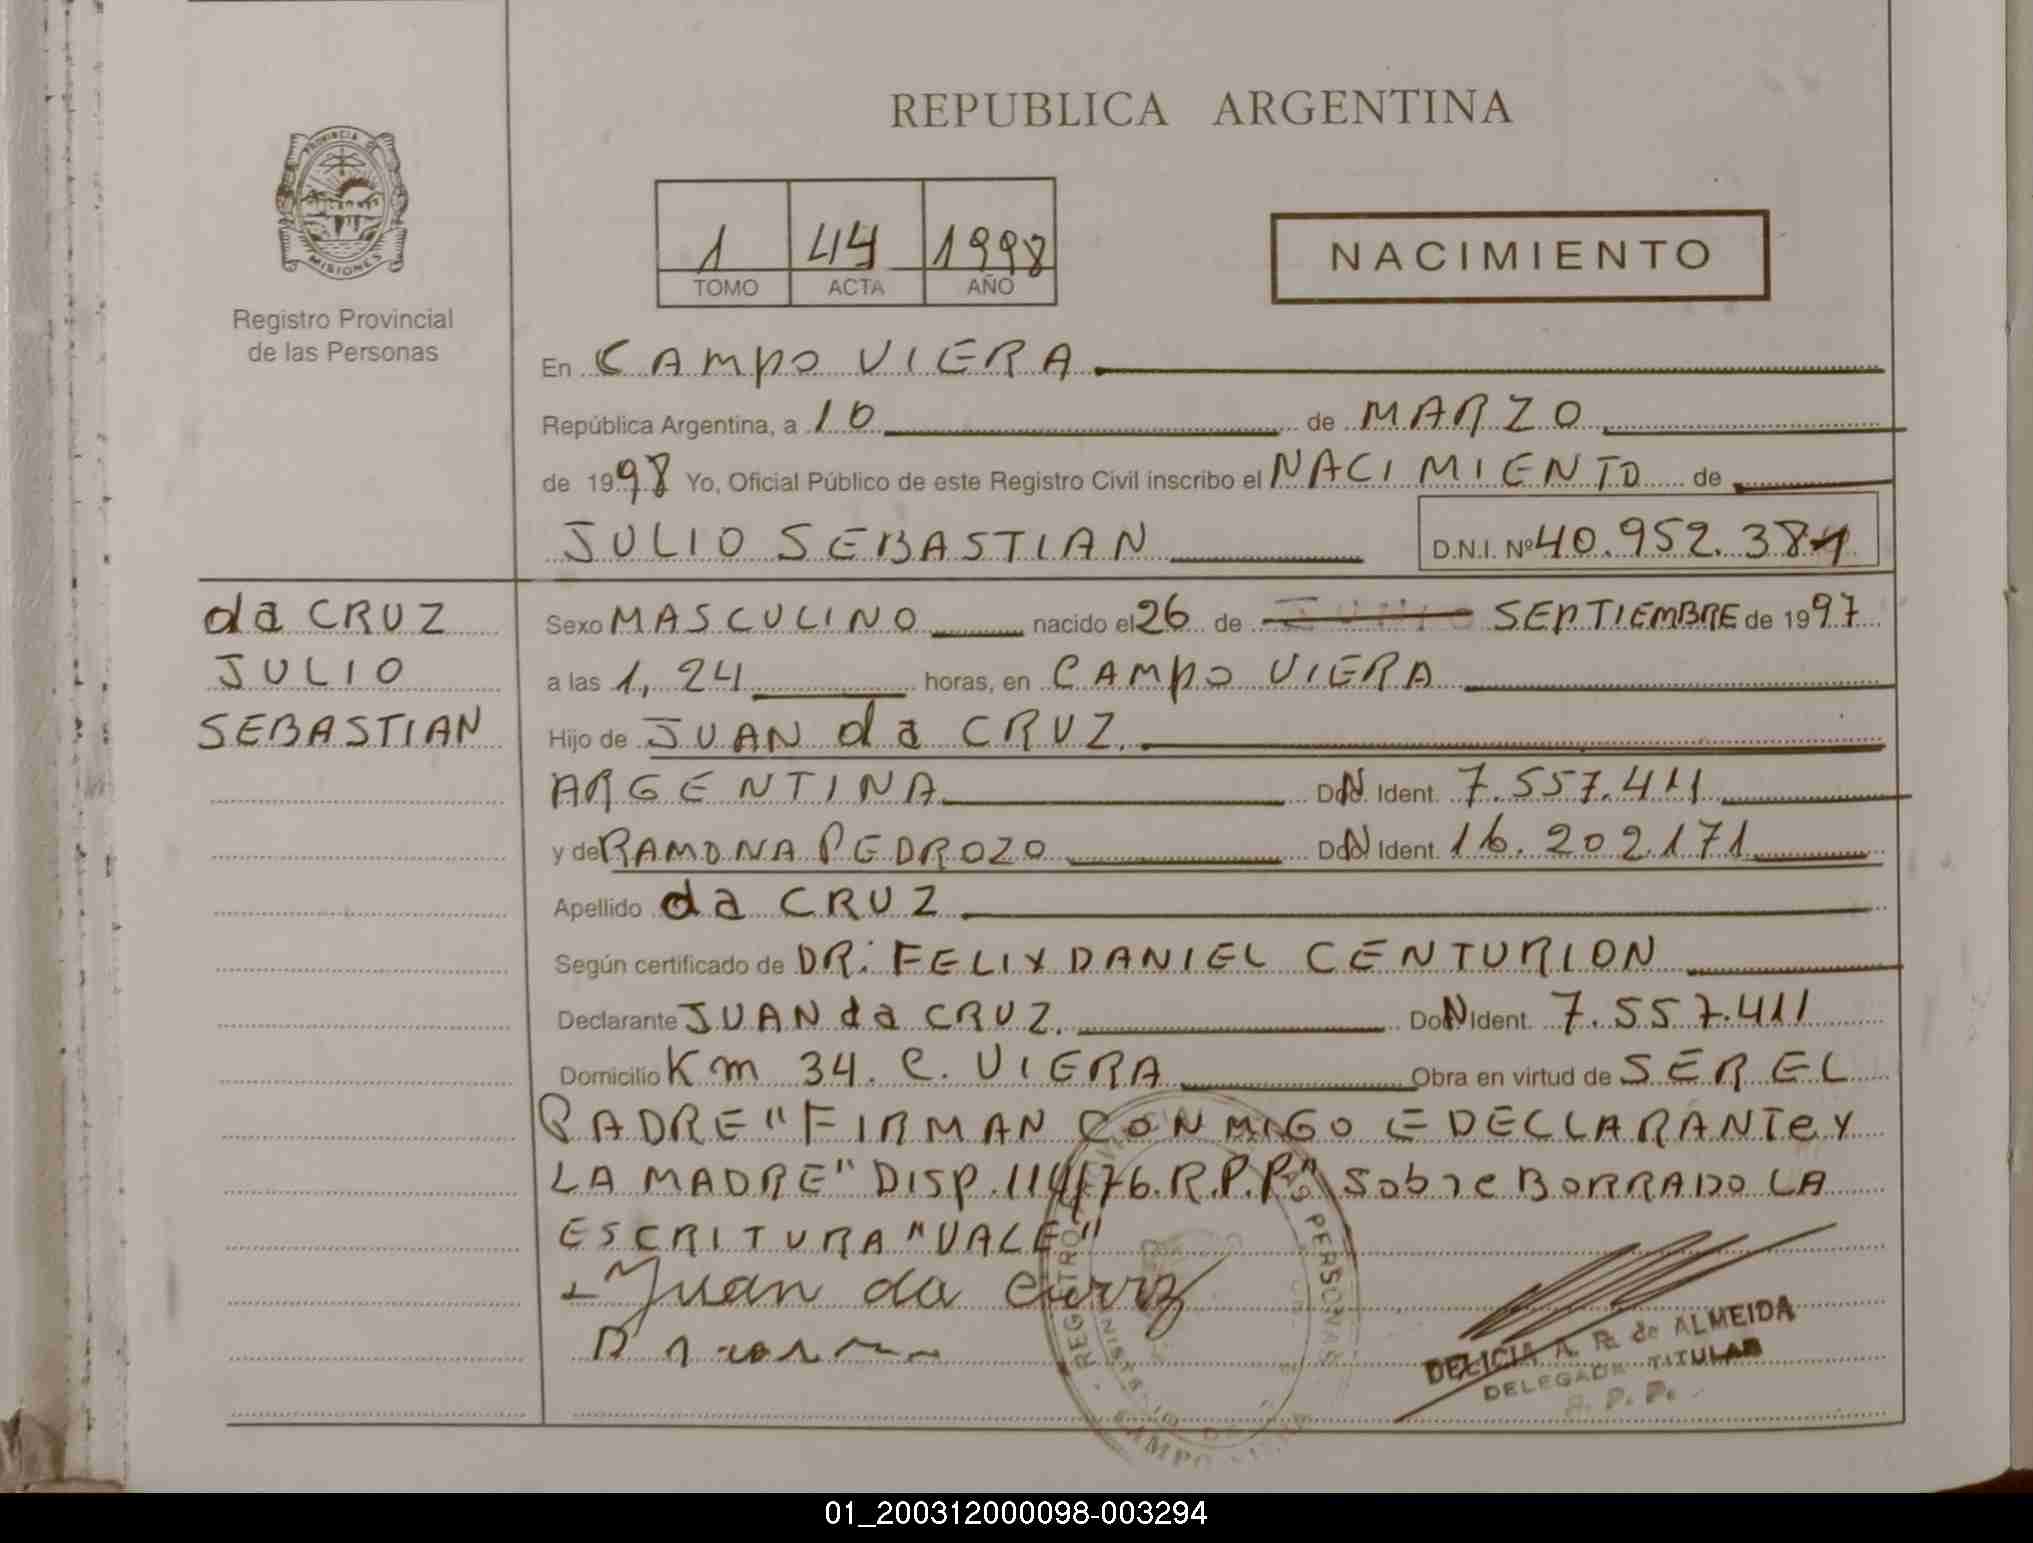 REPUBLICA ARGENTINA
PROVINCIA DE
MISIONES
Registro Provincial
de las Personas
1 44 1998
TOMO ACTA AÑO
NACIMIENTO
En CAMPO VIERA
República Argentina, a 10 de MARZO
de 1998 Yo, Oficial Público de este Registro Civil inscribo el NACIMIENTO de
JULIO SEBASTIAN D.N.I. Nº 40.952.381
da CRUZ
JULIO
SEBASTIAN
Sexo MASCULINO nacido el 26 de JUNIO SEPTIEMBRE de 1997
a las 1,24 horas, en CAMPO VIERA
Hijo de JUAN da CRUZ.
ARGENTINA Doc. Ident. 7.557.411
y de RAMONA PEDROZO Doc. Ident. 16.202.171
Apellido da CRUZ
Según certificado de DR: FELIX DANIEL CENTURION
Declarante JUAN da CRUZ. Doc. Ident. 7.557.411
Domicilio Km 34. C. VIERA Obra en virtud de SER EL
PADRE "FIRMAN CONMIGO E DECLARANTE Y
LA MADRE" DISP. 114/76. R.P.P" Sobre BORRADO LA
ESCRITURA "VALE"
Juan da Cruz
REGISTRO PERSONAS
CAMPO
DELICIA A. R. de ALMEIDA
DELEGADA TITULAR
R. P. P.
01_200312000098-003294